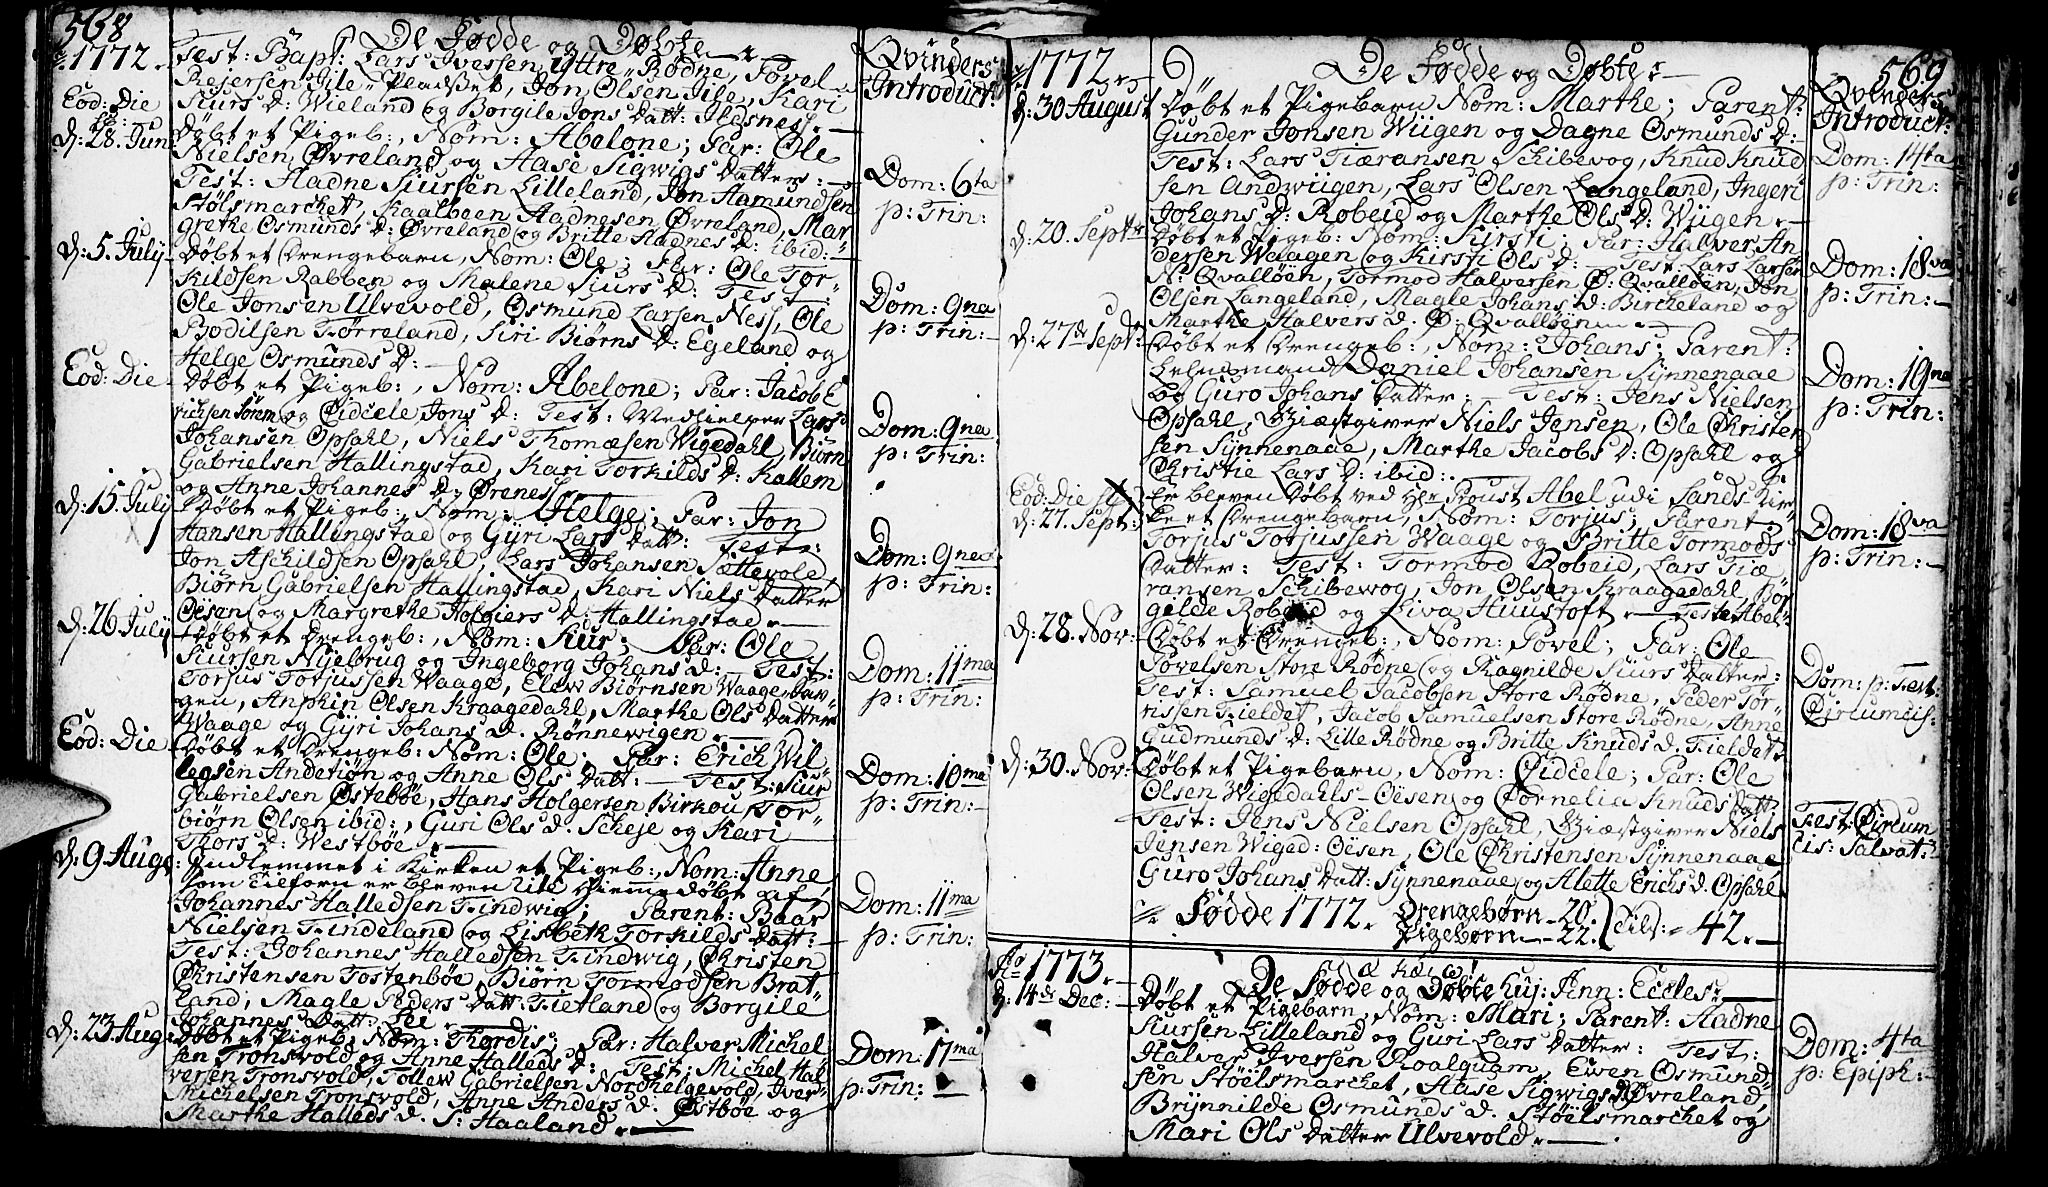 568
De Fødde og Døbte
Qvinders
Introduct:
1772.
Test: Bapt: Lars Ivessen yttre Rødne, Povel
Rejersen Jile Pladsset, Jon Olsen Jile, Kari
Siurs D: Wieland og Borgile Jons Datt: Ilesnes.
Eod: Die
d: 28. Jun:
Døbt et Pigeb:, Nom: Abelone; Par: Ole
Nielsen Øvreland og Aase Sigwigs Datter:
Test: Aadne Siursen Lilleland, Jon Aamundsen
Stølsmarchet, Kaalbeen Aadnesen Øvreland, Mar-
grethe Osmunds D: Øvreland og Britte Aadnes D: ibid:
Dom: 6ta
p: Trin:
d: 5. July
Døbt et Drengebarn, Nom: Ole; Par: Ole Tor-
kildsen Rabben og Malene Siurs D: Test:
Ole Jonsen Ulvevold, Osmund Larsen Ness, Ole
Bodilsen Tørreland, Siri Biørns D: Egeland og
Helge Osmunds D:
Dom: 9na
p: Trin:
Eod: Die
Døbt et Pigeb:, Nom: Abelone; Par: Jacob E
richsen Sørem og Cidcele Jons D: Test: Medhielper Lars
Johansen Opsahl, Niels Thomæsen Wigedahl, Biørn
Gabrielsen Hallingstad, Kari Torkilds D: Kallem
og Anne Johannes D: Ørenes
Dom: 9na
p: Trin:
d: 15. July
Døbt et Pigeb:, Nom: Helge; Par: Jon
Hansen Hallingstad og Gyri Lars Datt: Test:
Jon Aschildsen Opsahl, Lars Johansen Sættevold
Biørn Gabrielsen Hallingstad, Kari Niels Datter
Oësen og Margrethe Holgiers D: Hallingstad
Dom: 9na
p: Trin:
d: 26 July
Døbt et Drengeb:, Nom: Siur; Par: Ole
Siursen Nyebrug og Ingeborg Johans D: Test:
Torjus Torjussen Waage, Elew Biørnsen Waage Jar-
gen, Anphin Olsen Kraagedahl, Marthe Ols Datter
Waage og Gyri Johans D. Rønnewigen
Dom: 11ma
p: Trin:
Eod: Die
Døbt et Drengeb: Nom: Ole; Par: Erich Wil
legsen Andetiøn og Anne Ols Datt: Test: Siur
Gabrielsen Østebøe, Hans Holgersen Birkou, Tor-
biørn Olsen ibid:, Guri Ols D. Scheje og Kari
Thors D: Westbøe
Dom: 10ma
p: Trin:
d: 9. Aug:
Indlemmet i Kirken et Pigeb:, Nom: Anne
som tilforn er bleven hiemedøbt af
Johannes Halledsen Tindwig; Parent: Baar
Nielsen Tindeland og Lisbeth Torkilds Datt:
Test: Johannes Halledsen Tindwig, Christen
Christensen Tostenbøe, Biørn Tormodsen Brat
land, Magle Peders Datt: Tietland og Borgile
Johannes Datt:
Dom: 11ma
p: Trin:
d: 23. Aug:
Døbt et Pigeb: Nom: Thordis; Par: Halver Michel
sen Tronsvold og Anne Halleds D: Test: Michel Hal
versen Tronsvold, Tollew Gabrielsen Nordhelgevold, Iver
Michelsen Tronsvold, Anne Anders D. Østbøe og
Marthe Halleds D. S: Haaland.
Dom: 17ma
p: Trin:
569
De Fødde og Døbte
Qvinders
Introduct:
1772
d: 30 August
Døbt et Pigebarn Nom: Marthe; Parent:
Gunder Jonsen Wiigen og Dagne Osmunds D:
Test: Lars Tiæransen Schibevog, Knud Knud
sen Andwiigen, Lars Olsen Langeland, Ingeri
Johans D: Robeid og Marthe Ols D: Wiigen
Dom: 14ta
p: Trin:
d: 20. Septr
Døbt et Pigeb: Nom: Kirsti; Par: Halver An
dersen Waagen og Kirsti Ols D: Test: Lars Larsen
N: Qvalløen, Tormod Halversen Ø: Qvalløen, Jon
Olsen Langeland, Magle Johans D: Bircheland og
Marthe Halvers D. Ø: Qvalløen
Dom: 18va
p: Trin:
d: 27de Septr
Døbt et Drengeb:, Nom: Johans; Parent:
Lehnsmand Daniel Johansen Synnenaae
og Guro Johans Datter: Test: Jens Nielsen
Opsahl, Giæstgiver Niels Jensen, Ole Christen
sen Synnenaae, Marthe Jacobs D: Opsahl og
Christie Lars D: ibid:
Dom: 19na
p: Trin:
Eod: Die
d: 27. Sept:
Er bleven Døbt ved Hr Proust Abel udi Sands Kir-
ke et Drengebarn, Nom: Torjus; Parent:
Torjus Torjussen Waage og Britte Tormods
Datter: Test: Tormod Robeid, Lars Tiæ
ransen Schibewog, Jon Olsen Kraagedahl, Bor
gilde Robeid og Siva Huustoft Teste Abel
Dom: 18va
p: Trin:
d: 28. Nov:
Døbt et Drengeb:, Nom: Povel; Par: Ole
Povelsen Store Rødne og Ragnilde Siurs Datter:
Test: Samuel Jacobsen Store Rødne, Peder Tør
rissen Tieldet, Jacob Samuelsen Store Rødne, Anne
Gudmunds D: Lille Rødne og Britte Knuds D. Tieldet
Dom: p: Fest:
Circumcis:
d: 30. Nov:
Døbt et Pigebarn, Nom: Cidcele; Par: Ole
Olsen Wigedahls-Oësen og Cornelia Knuds Datt:
Test: Jens Nielsen Opsahl, Giæstgiver Niels
Jensen Wiged: Oësen, Ole Christensen Synnenaae
Guro Johans Datt: Synnenaae og Alette Erichs D. Opsahl
Fest: Circum
cis: Salvat:
Fødde 1772. Drengebørn 20.
Pigebørn 22. Tils: 42.
Ao 1773.
De Fødde og Døbte huj: Ann: Eccles:
d: 14de Dec:
Døbt et Pigebarn, Nom: Mari; Parent: Aadne
Siursen Lilleland og Guri Lars Datter: Test:
Halver Iversen Roalquam, Ewen Osmund
sen Støelsmarchet, Aase Sigwigs D: Øvreland
Brynnilde Osmunds D. Støelsmarchet og
Mari Ols Datter Ulvevold.
Dom: 4ta
p: Epiph: